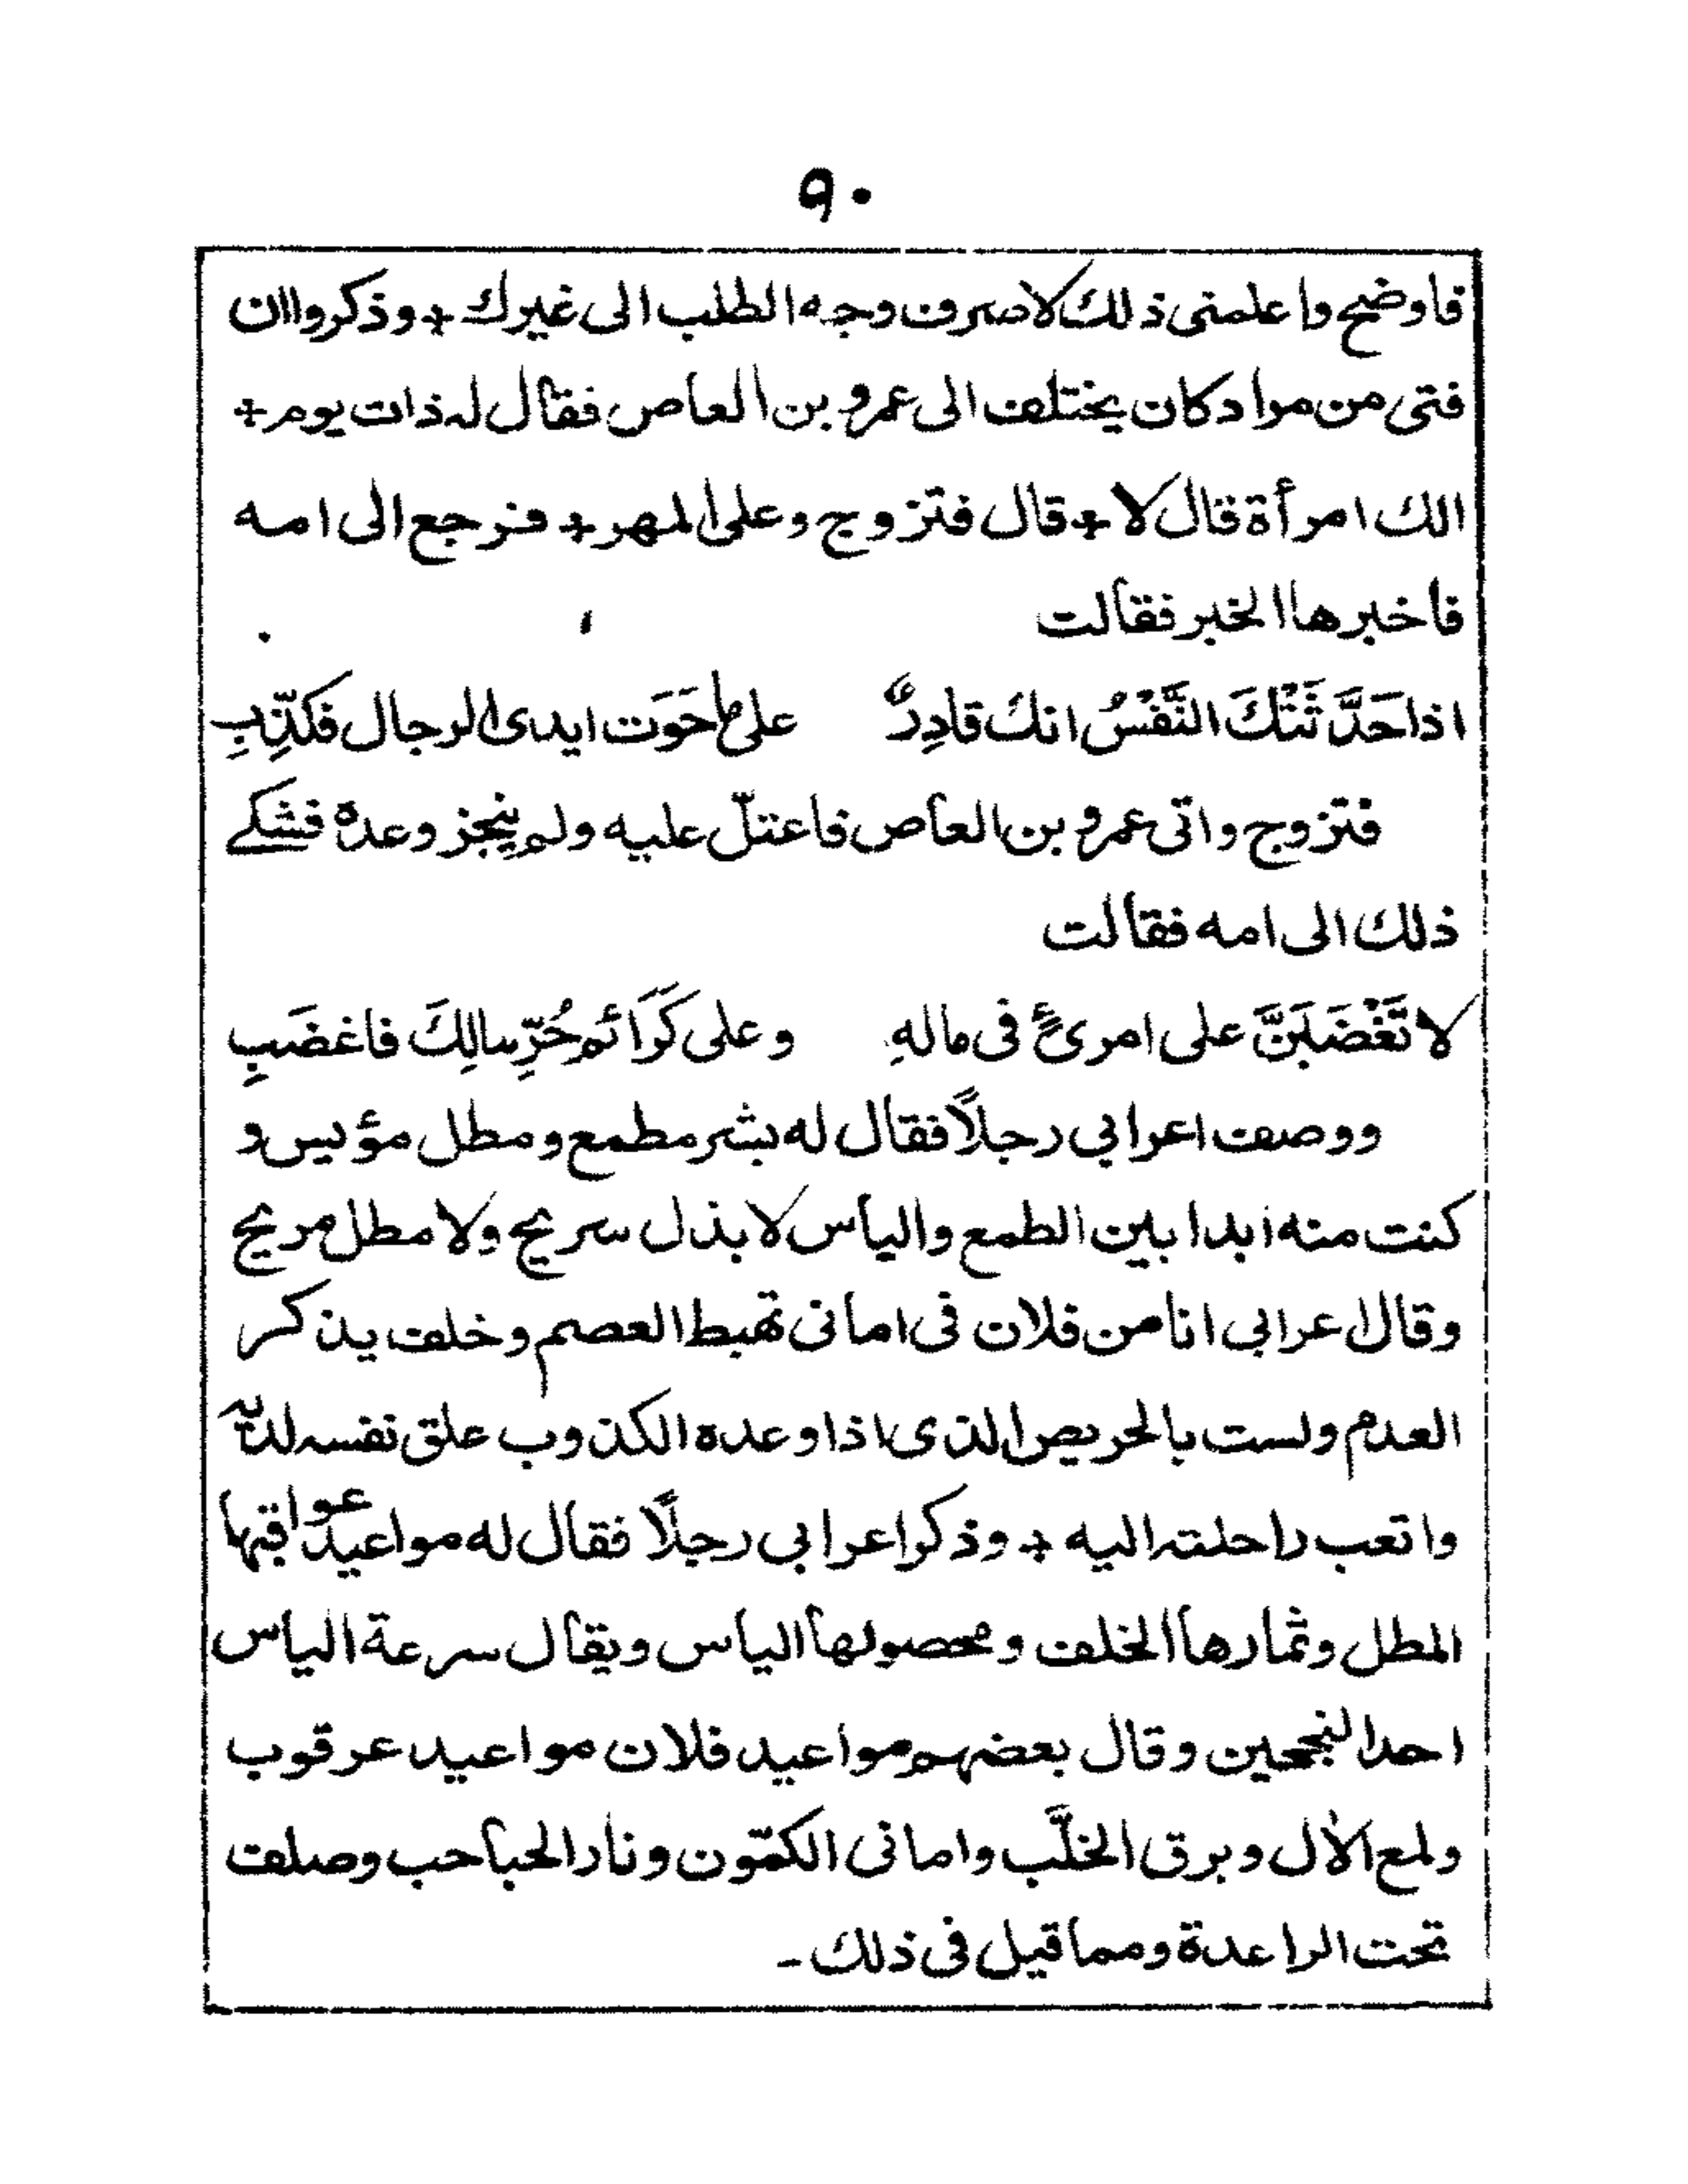 ٩٠
فاوضح واعلمنى ذلك لاصرف وجه الطلب الى غيرك + وذكروا ان
فتى من مراد كان يختلف الى عمرو بن العاص فقال له ذات يوم +
الك امرأة قال لا + قال فتزوج وعلى المهر + فرجع الى امه
فاخبرها الخبر فقالت
اذا حَدَّثَتْكَ النَّفْسُ انك قادِرٌ على ما حَوَت ايدى الرجال فكَذِّبِ
فتزوج واتى عمرو بن العاص فاعتلّ عليه ولم ينجز وعده فشكى
ذلك الى امه فقالت
لا تَغْضَبَنَّ على امرئٍ فى مالهِ وعلى كَرَائم حُرِّ مالِكَ فاغضَبِ
ووصف اعرابي رجلاً فقال له بشر مطمع ومطل مؤيس و
كنت منه ابدا بين الطمع والياس لا بذل سريح ولا مطل مريح
وقال اعرابي انا من فلان فى امانى تهبط العصم وخلف يذكر
العدم ولست بالحريص الذى اذا وعده الكذوب علق نفسه لديه
واتعب راحلته اليه + وذكر اعرابي رجلًا فقال له مواعيد عواقبها
المطل وثمارها الخلف ومحصولها الياس ويقال سرعة الياس
احد النجحين وقال بعضهم مواعيد فلان مواعيد عرقوب
ولمع الأل وبرق الخلَّب وامانى الكمّون ونار الحباحب وصلف
تحت الراعدة ومما قيل فى ذلك -